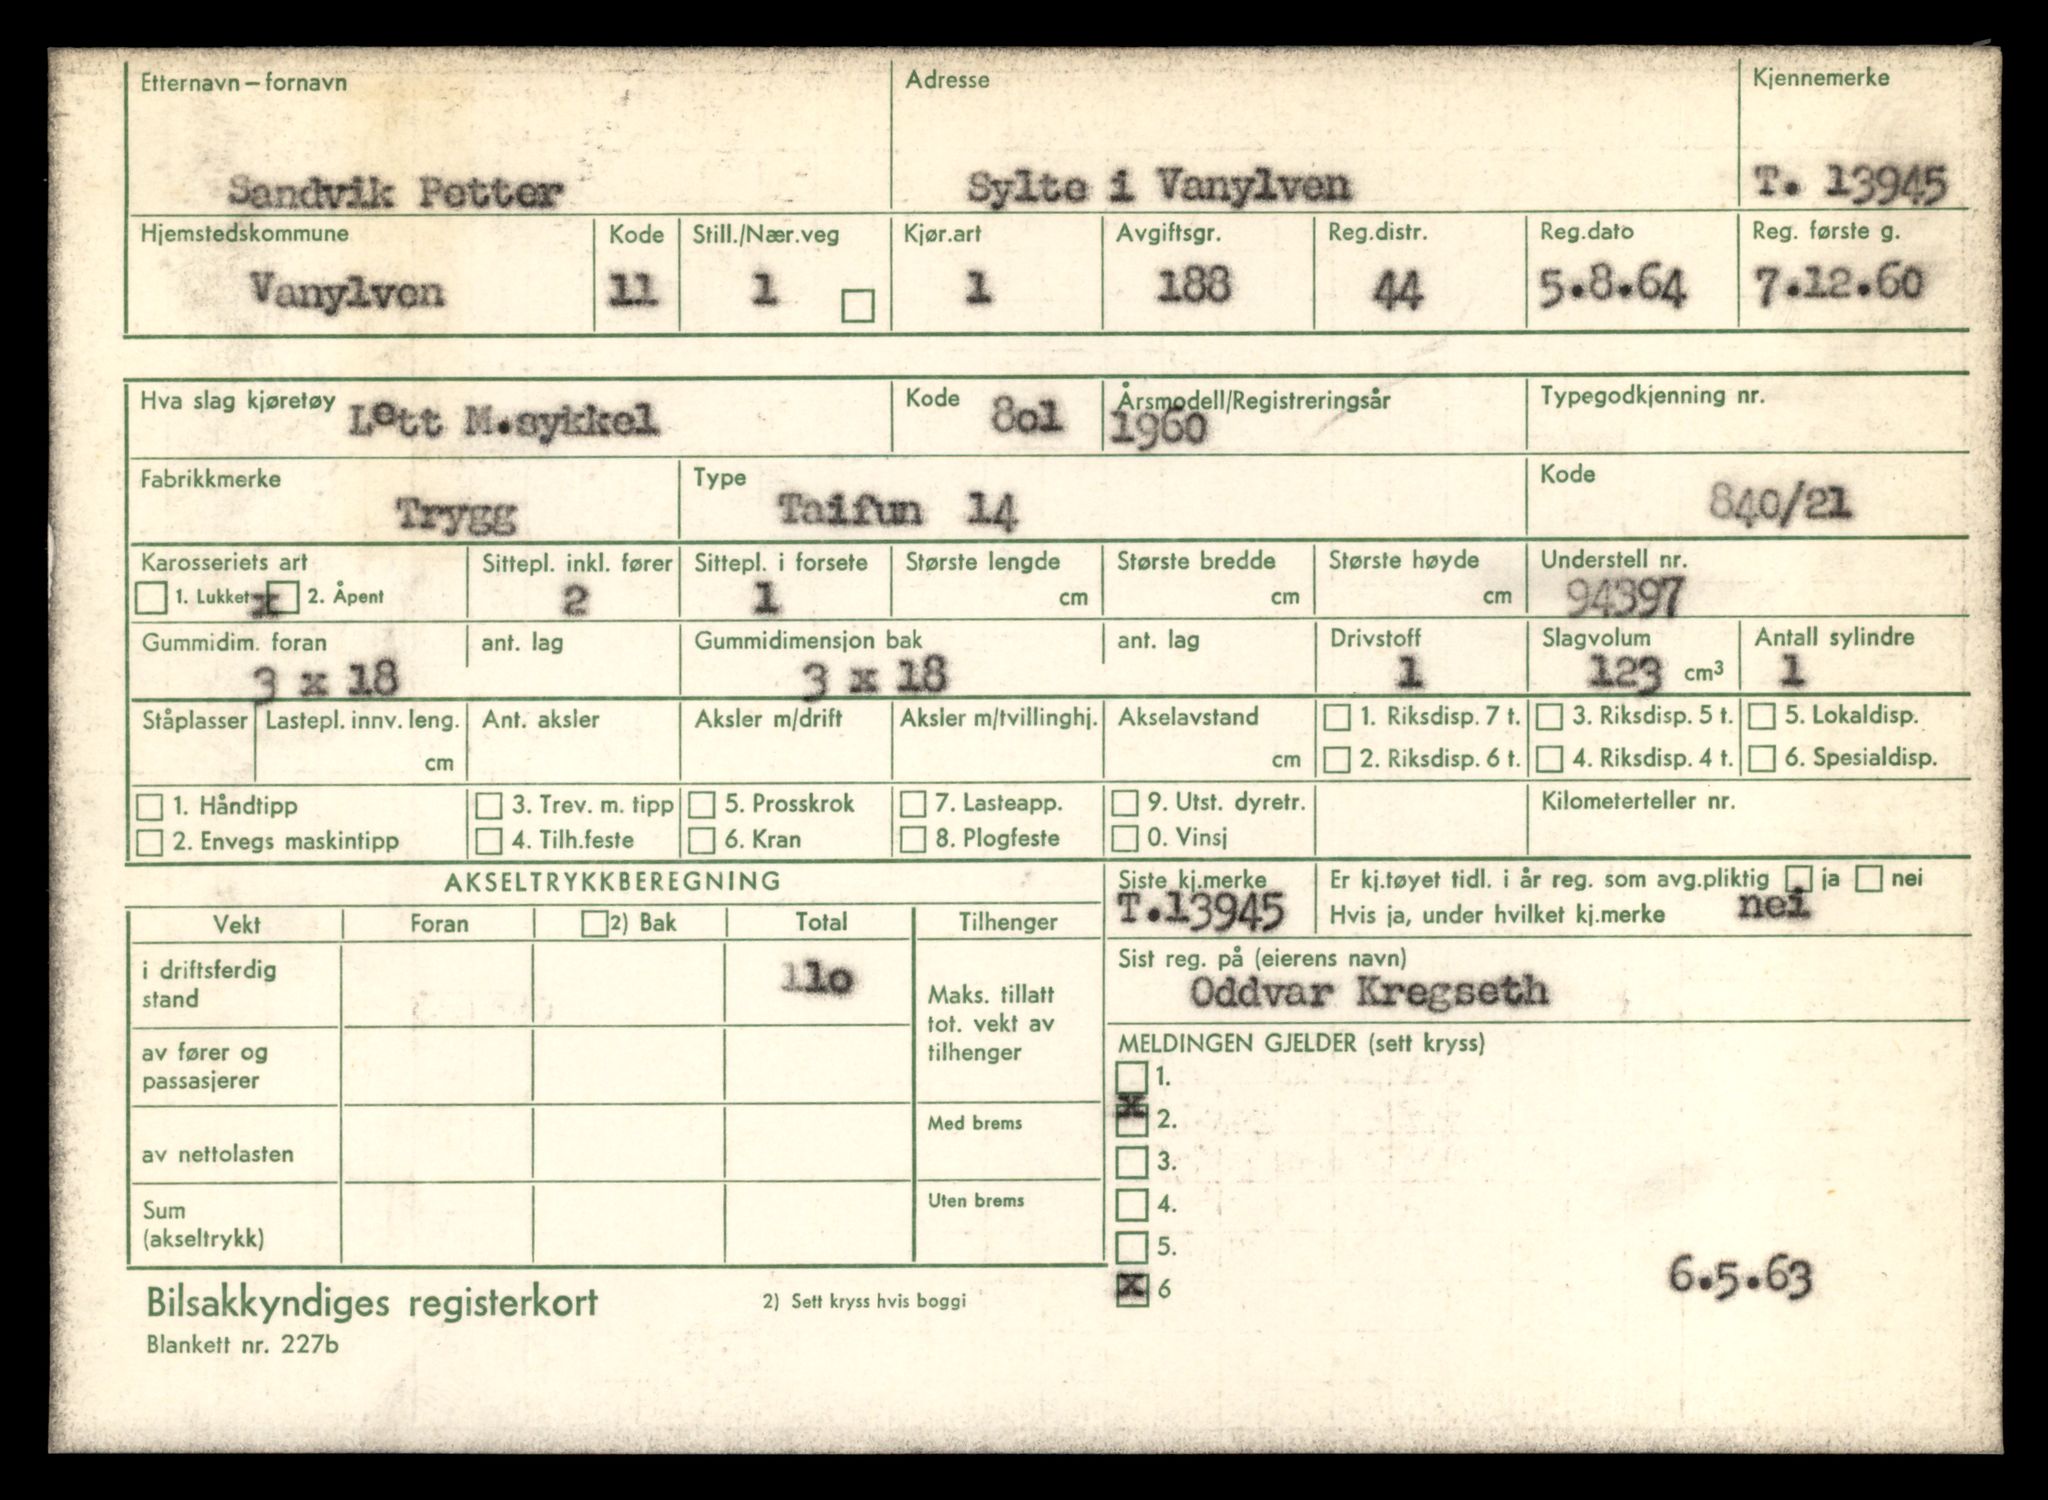 Etternavn – fornavn Adresse Kjennemerke
Sandvik Petter Sylte i Vanylven T. 13945
Hjemstedskommune Kode Still./Nær.veg Kjør.art Avgiftsgr. Reg.distr. Reg.dato Reg. første g.
Vanylven 11 1 1 188 44 5.8.64 7.12.60
Hva slag kjøretøy Kode Årsmodell/Registreringsår Typegodkjenning nr.
Lett M.sykkel 8o1 1960
Fabrikkmerke Type Kode
Trygg Taifun 14 840/21
Karosseriets art Sittepl. inkl. fører Sittepl. i forsete Største lengde Største bredde Største høyde Understell nr.
1. Lukket x 2. Åpent 2 1 cm cm cm 94397
Gummidim. foran ant. lag Gummidimensjon bak ant. lag Drivstoff Slagvolum Antall sylindre
3 x 18 3 x 18 1 123 cm³ 1
Ståplasser Lastepl. innv. leng. Ant. aksler Aksler m/drift Aksler m/tvillinghj. Akselavstand 1. Riksdisp. 7 t. 3. Riksdisp. 5 t. 5. Lokaldisp.
cm cm 2. Riksdisp. 6 t. 4. Riksdisp. 4 t. 6. Spesialdisp.
1. Håndtipp 3. Trev. m. tipp 5. Prosskrok 7. Lasteapp. 9. Utst. dyretr. Kilometerteller nr.
2. Envegs maskintipp 4. Tilh.feste 6. Kran 8. Plogfeste 0. Vinsj
AKSELTRYKKBEREGNING
Siste kj.merke Er kj.tøyet tidl. i år reg. som avg.pliktig ja nei
T.13945 Hvis ja, under hvilket kj.merke nei
Vekt Foran 2) Bak Total Tilhenger
Sist reg. på (eierens navn)
Oddvar Kregseth
i driftsferdig
stand
11o
Maks. tillatt
tot. vekt av
tilhenger
av fører og
passasjerer
av nettolasten
Med brems
Sum
(akseltrykk)
Uten brems
MELDINGEN GJELDER (sett kryss)
1.
x 2.
3.
4.
5.
x 6
6.5.63
Bilsakkyndiges registerkort 2) Sett kryss hvis boggi
Blankett nr. 227b